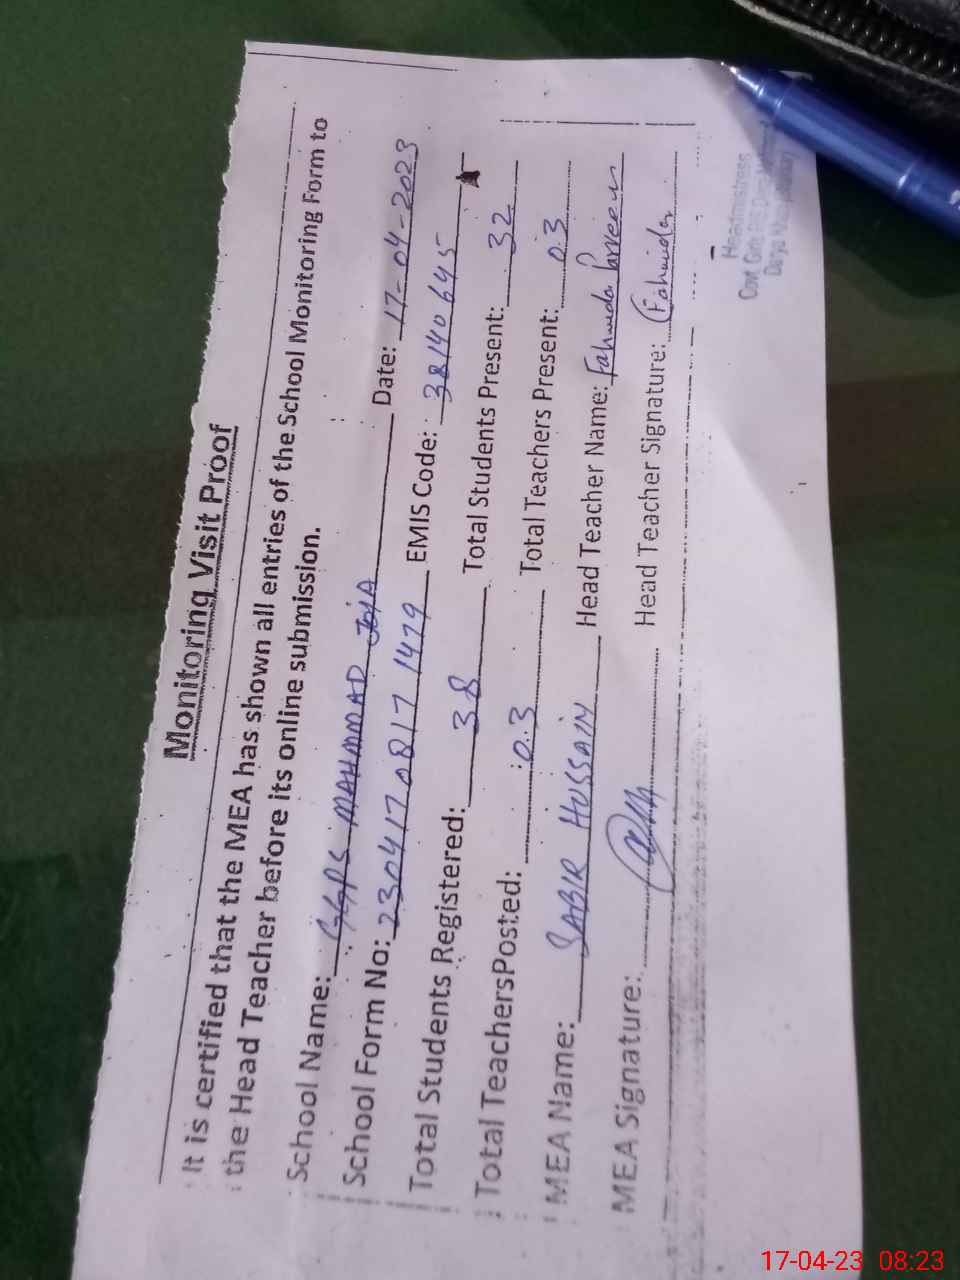 Monitoring Visit Proof
It is certified that the MEA has shown all entries of the School Monitoring Form to
the Head Teacher before its online submission.
School Name: GGPS MAHMMAD JOIA Date: 17-04-2023
School Form No: 230417 0817 1479 EMIS Code: 38140645
Total Students Registered: 38 Total Students Present: 32
Total TeachersPosted: 03 Total Teachers Present: 03
MEA Name: SABIR HUSSAIN Head Teacher Name: Fahmeda Parveen
MEA Signature: Head Teacher Signature:
Headmistress
Govt Girls
17-04-23 08:23